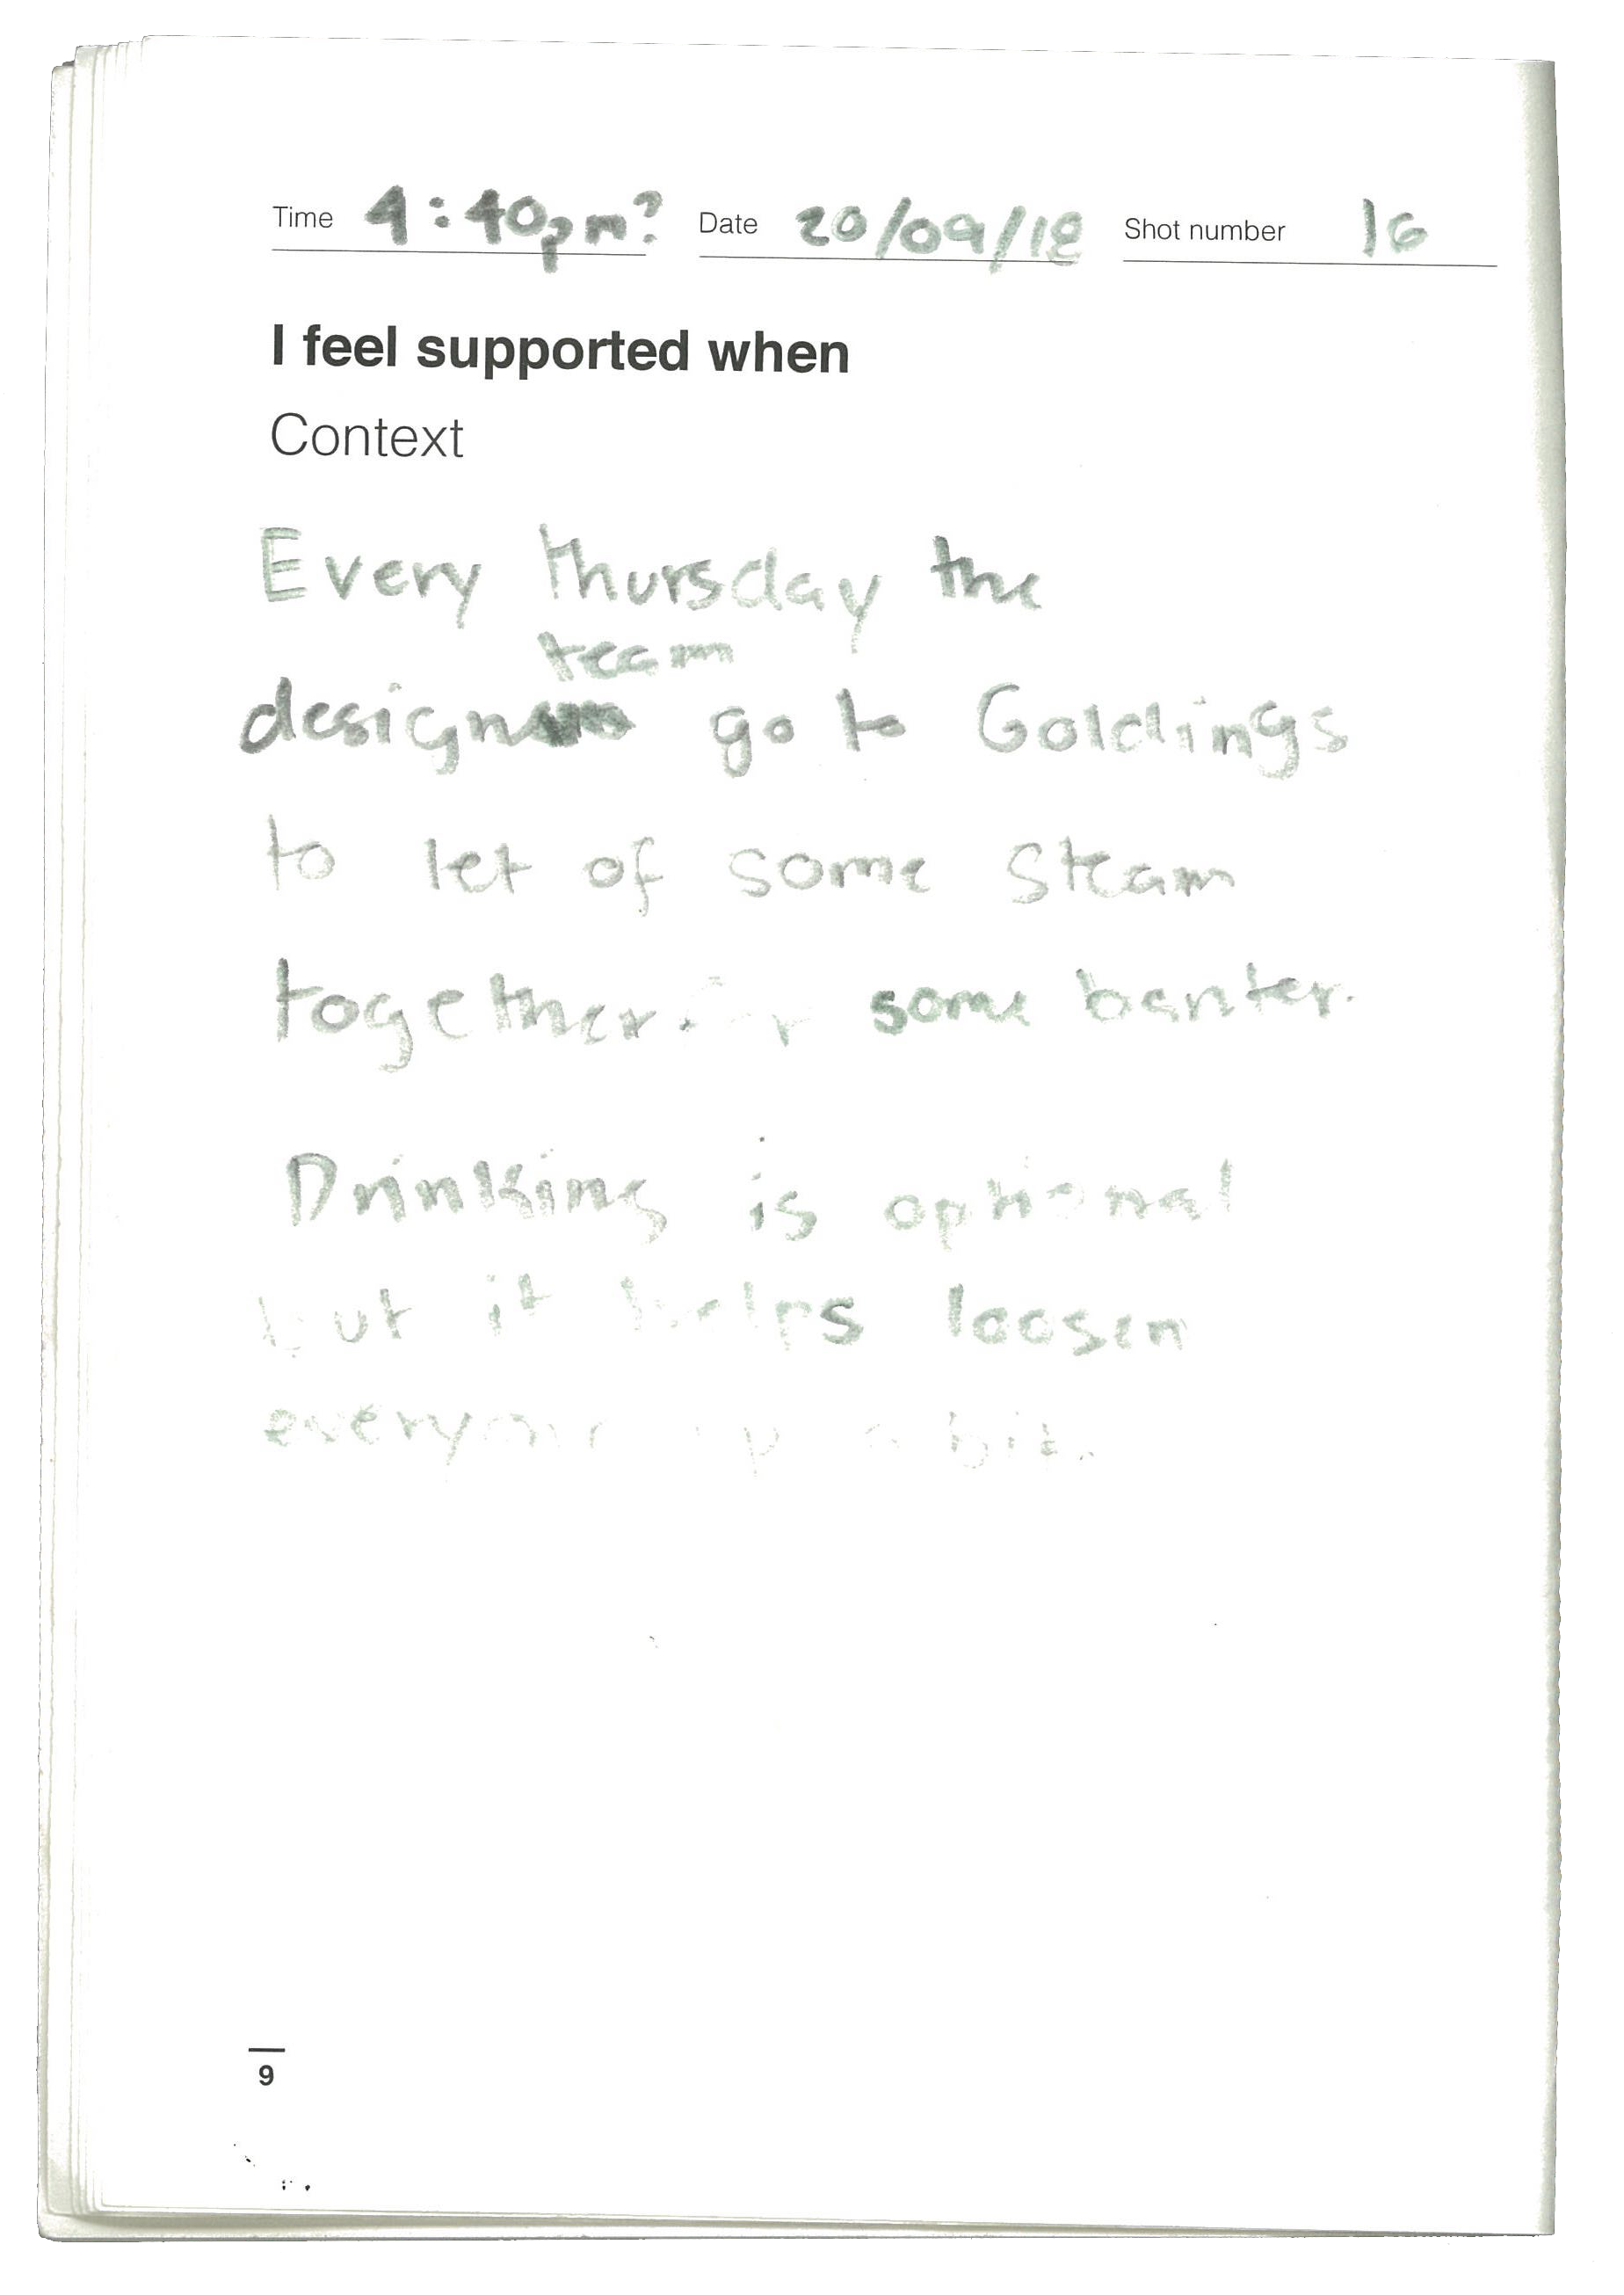 Time 4:40pm? Date 20/09/18 Shot number 16
I feel supported when
Context
Every thursday the
team
design go to Goldings
to let of some steam
together. some banter.
Drinking is optional
but it helps loosen
everyone up a bit.
9